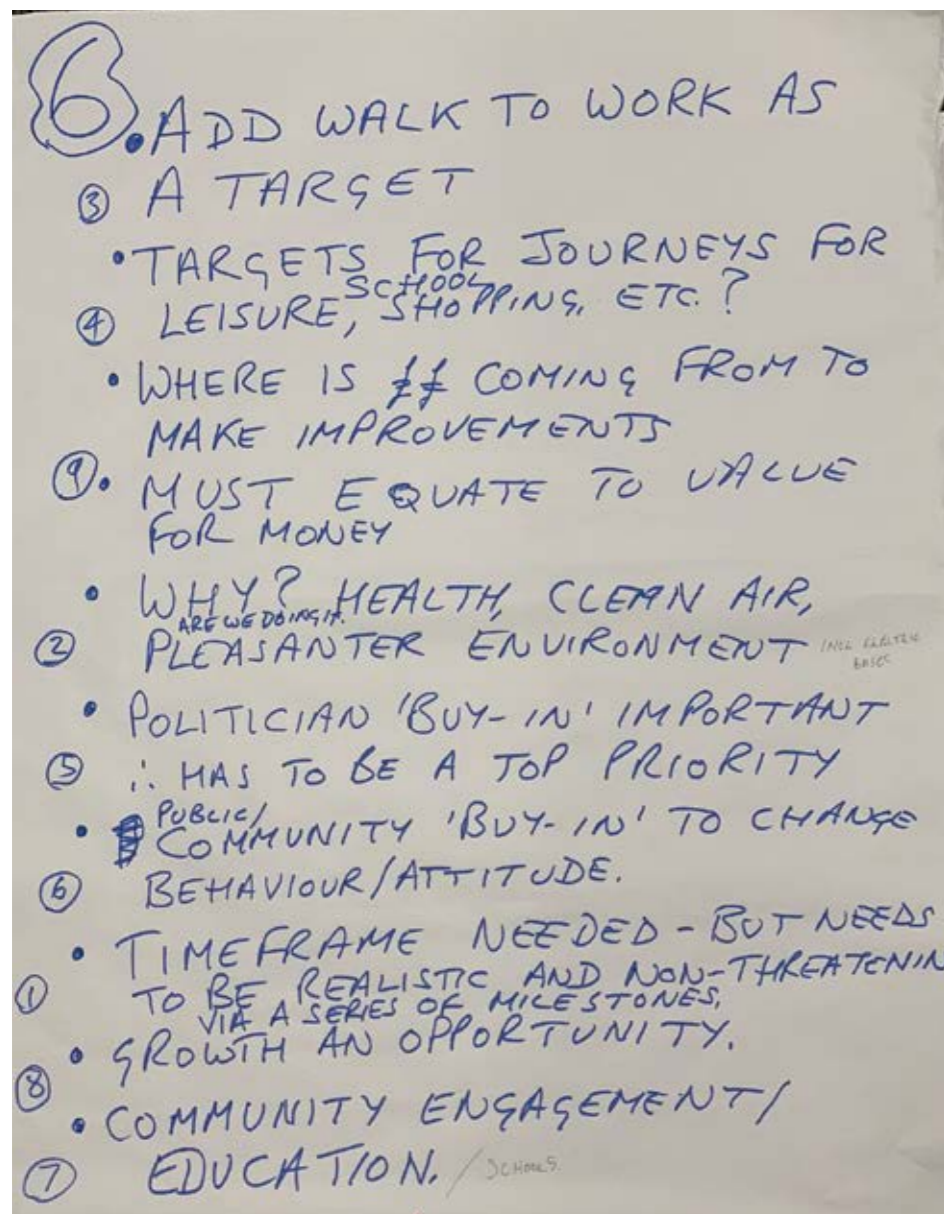 6. • ADD WALK TO WORK AS
③ A TARGET
• TARGETS FOR JOURNEYS FOR
SCHOOL
④ LEISURE, SHOPPING, ETC.?
• WHERE IS ££ COMING FROM TO
MAKE IMPROVEMENTS
⑨ • MUST EQUATE TO VALUE
FOR MONEY
• WHY? HEALTH, CLEAN AIR,
ARE WE DOING IT.
② PLEASANTER ENVIRONMENT INCL ELECTRIC
• POLITICIAN 'BUY-IN' IMPORTANT
⑤ ∴ HAS TO BE A TOP PRIORITY
PUBLIC/
• COMMUNITY 'BUY-IN' TO CHANGE
⑥ BEHAVIOUR/ATTITUDE.
• TIMEFRAME NEEDED - BUT NEEDS
① TO BE REALISTIC AND NON-THREATENIN
VIA A SERIES OF MILESTONES.
• GROWTH AN OPPORTUNITY.
⑧
• COMMUNITY ENGAGEMENT/
⑦ EDUCATION. / SCHOOLS.